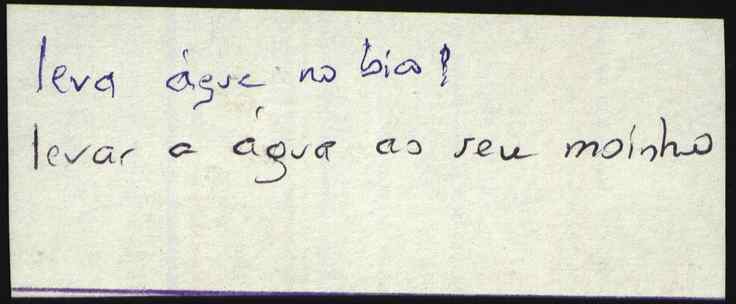 leva água no bico!
levar a água ao seu moinho